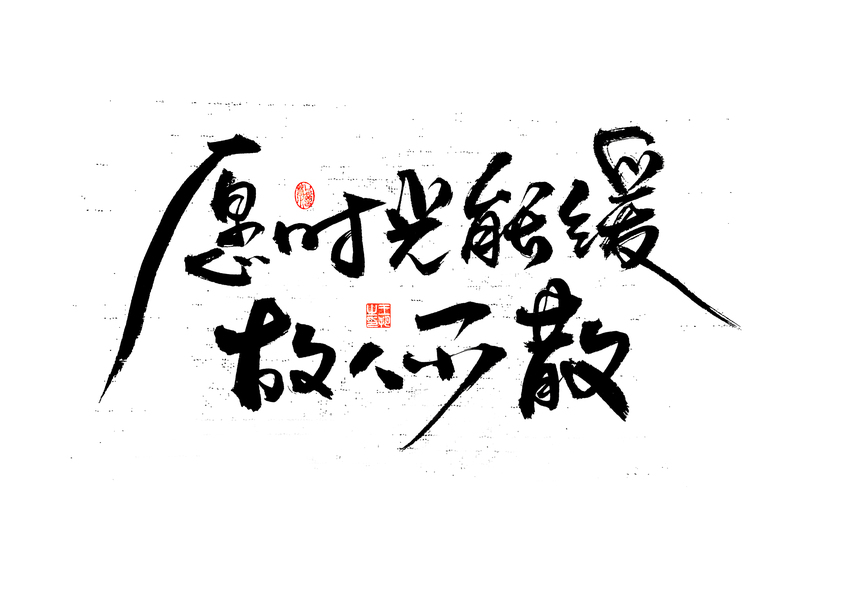 愿时光能缓
故人不散